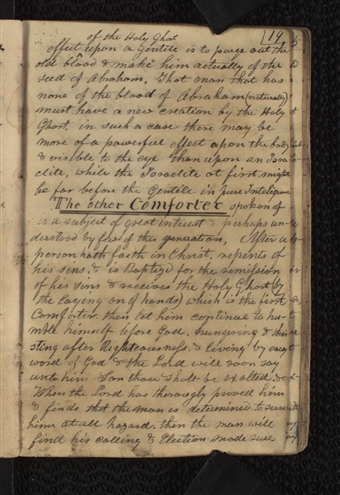 of the Holy Ghost
14
effect upon a Gentile is to purge out the
old blood & make him actually of the
seed of Abraham. That man that has
none of the blood of Abraham (naturally)
must have a new creation by the Holy
Ghost, in such a case there may be
more of a powerful effect upon the body
& visible to the eye than upon an Isra
elite, while the Israelite at first might
be far before the Gentile in pure Inteligence
The other Comforter spoken of
is a subject of great interest & perhaps un-
derstood by few of this generation, After a
person hath faith in Christ, repents of
his sins, & is Baptized for the remission
of his sins & receives the Holy Ghost by
the laying on of hands) which is the first
Comforter then let him continue to hu-
mble himself before God, hungering & thir
sting after Righteousness, & living by every
word of God & the Lord will soon say
unto him Son thou shalt be exalted, &c
When the Lord has thoroughly proved him
& finds that the man is determined to serve
him at all hazard, then the man will
find his calling & Election made sure